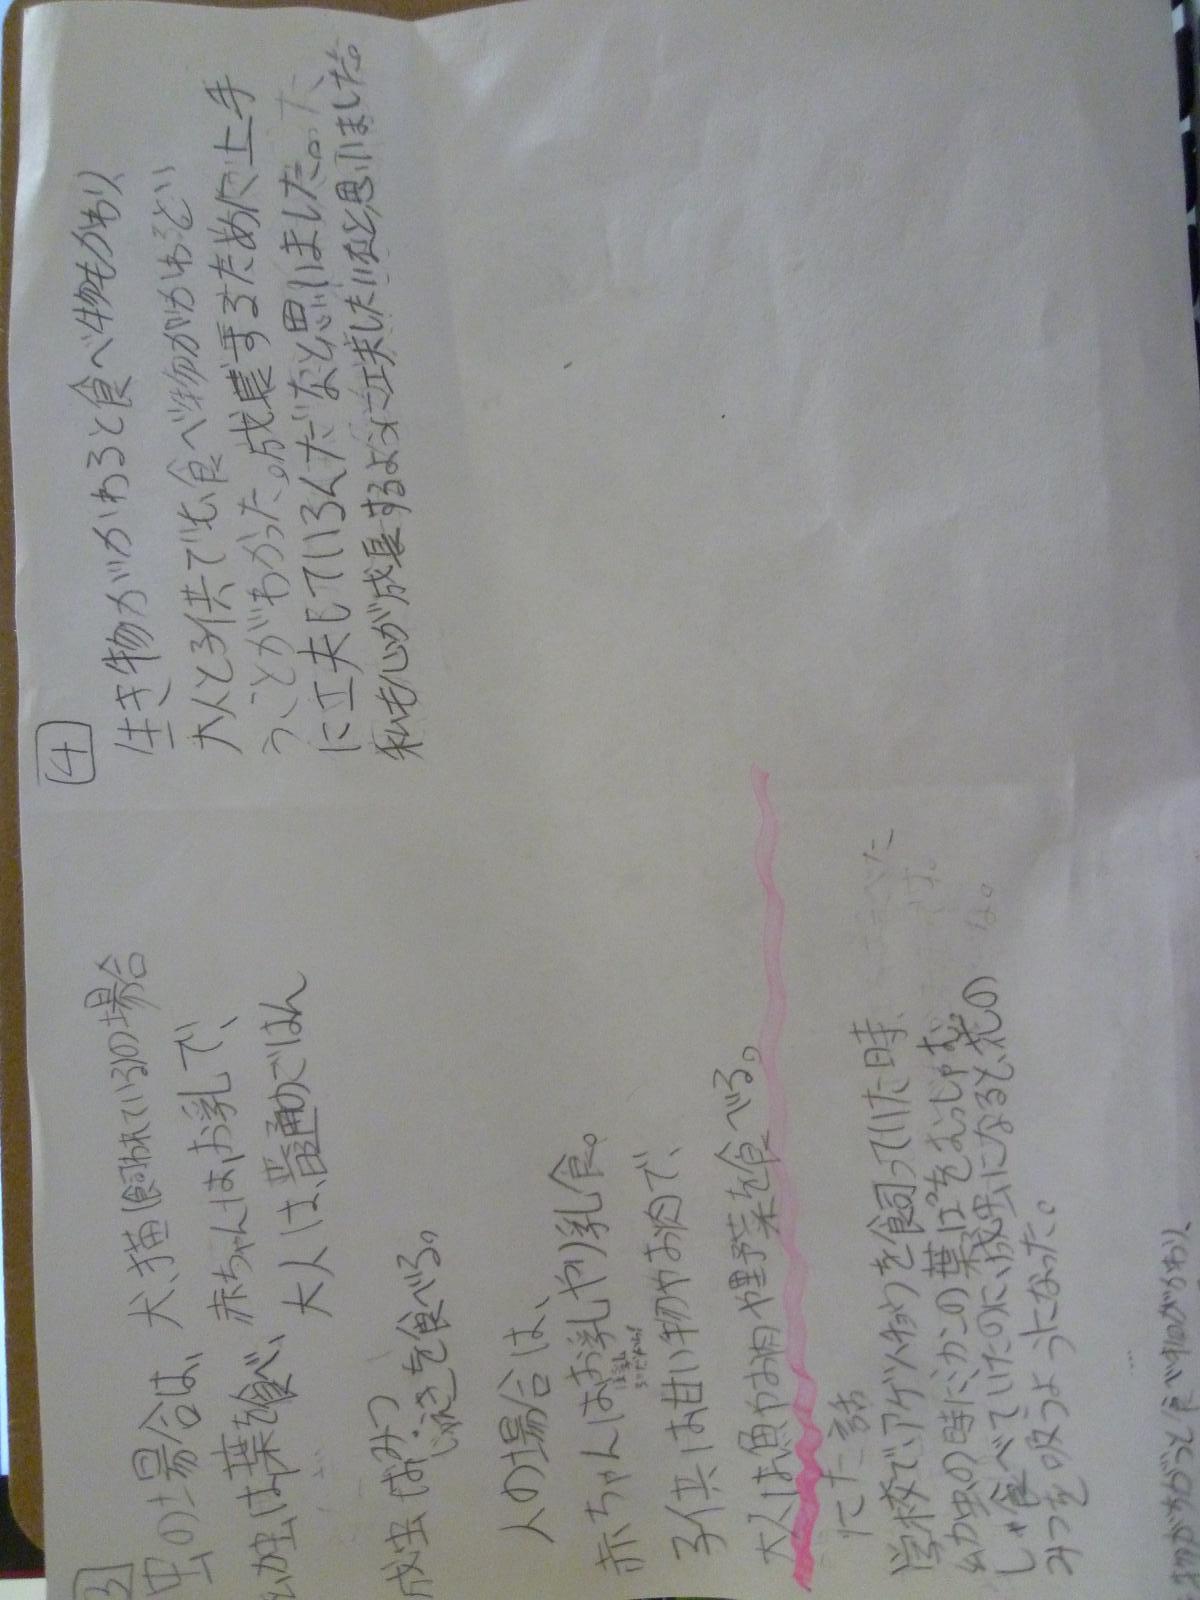 3
虫の場合は、
幼虫は葉を食べ、
成虫はみつ
じゅえきを食べる。
犬、猫(飼われている)の場合
赤ちゃんはお乳で、
大人は、普通のごはん
人の場合は、
赤ちゃんはお乳やり乳食。
子供は甘い物やお肉で、
大人は魚やお肉や野菜を食べる。
にた話
学校で、アゲハチョウを飼っていた時、
幼虫の時に、みかんの葉ぱをむしゃむ
しゃ食べていたのに、成虫になると、花の
みつを吸うようになった。
4
生き物がかわると食べ物もかわり、
大人と子供でも食べ物がかわるとい
うことがわかった。成長するために上手
に工夫しているんだなと思いました。
私も心が成長するように工夫したいなと思いました。